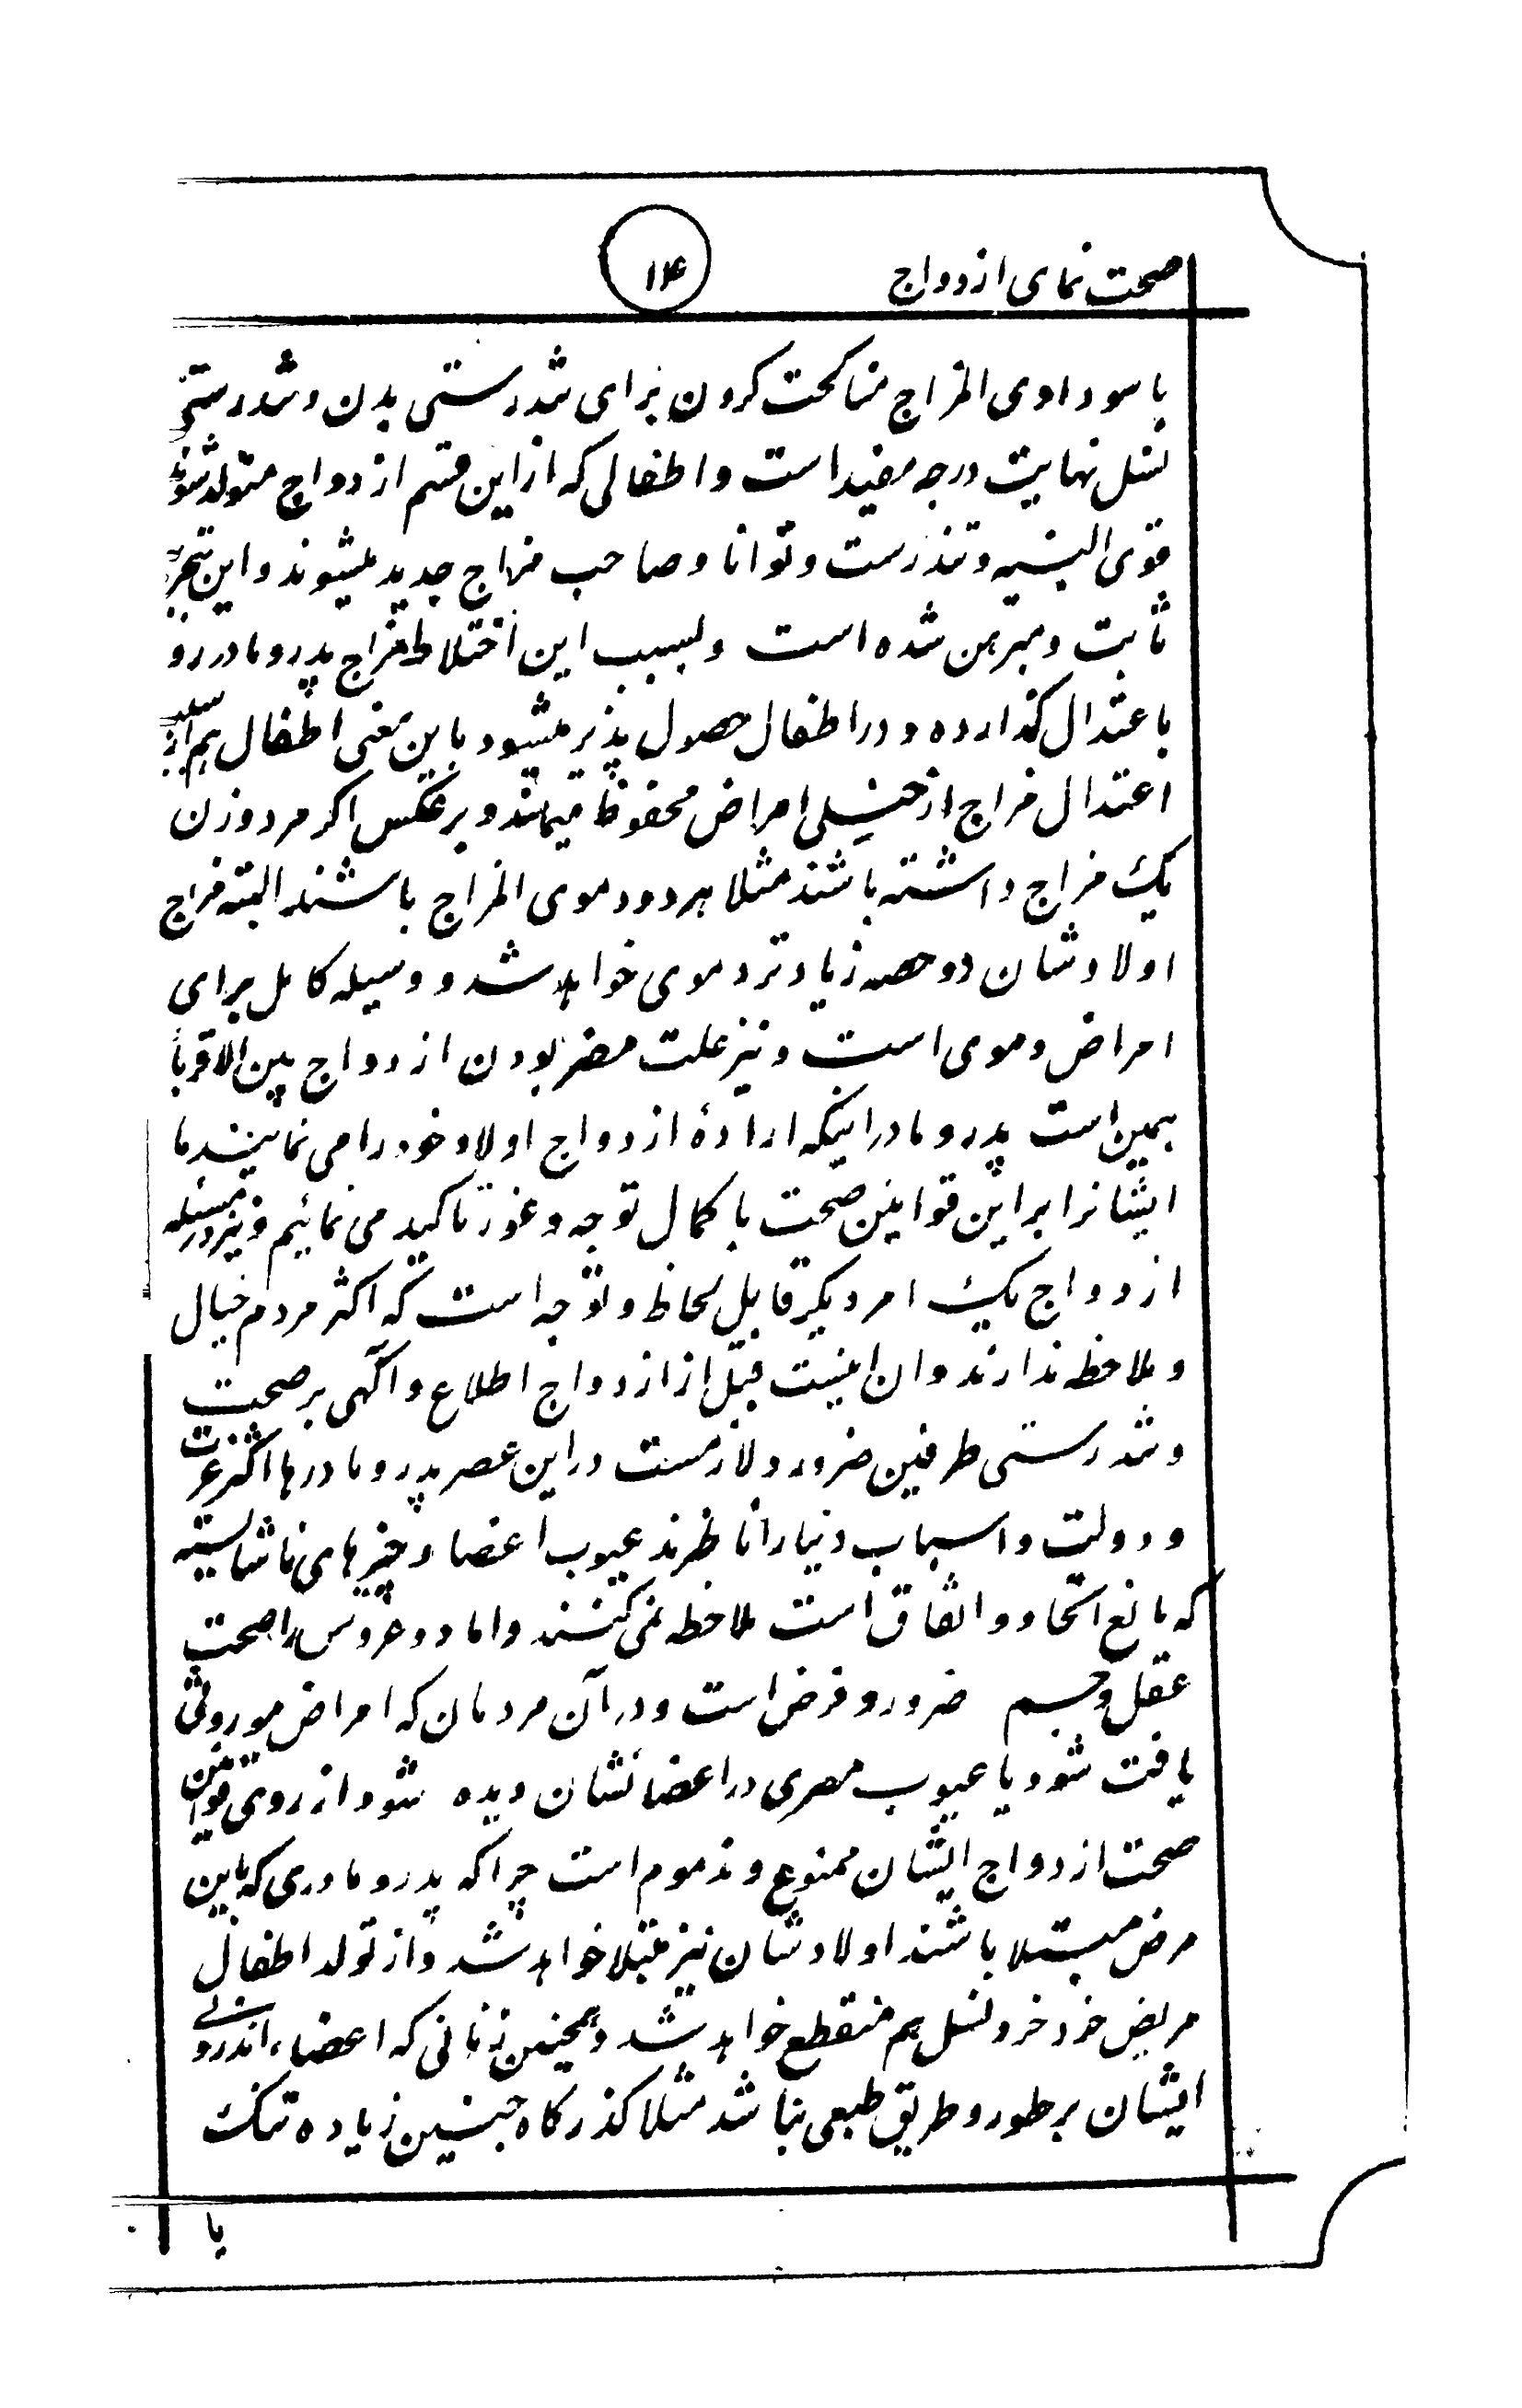 صحت نمای ازدواج
۱۴
با سوداوی المزاج مناکحت کردن برای تندرستی بدن و تندرستی
نسل نهایت درجه مفید است و اطفالی که از این قسم ازدواج متولد شوند
قوی البنیه و تندرست و توانا و صاحب مزاج جدید میشوند و این تجربه
ثابت و مبرهن شده است و بسبب این اختلاط مزاج پدر و مادر رو
باعتدال گذارده و در اطفال حصول پذیر میشود باین معنی اطفال هم از
اعتدال مزاج از خیلی امراض محفوظ میمانند و برعکس اگر مرد و زن
یک مزاج داشته باشند مثلا هر دو دموی المزاج باشند البته مزاج
اولادشان دو حصه زیادتر دموی خواهد شد و وسیله کامل برای
امراض دموی است و نیز علت مضر بودن ازدواج بین الاقربا
همین است پدر و مادر اینکه ارادهٔ ازدواج اولاد خود را می نمایند ما
ایشانرا بر این قوانین صحت با کمال توجه و غور تاکید می نمائیم و نیز در مسئله
ازدواج یک امر دیگر قابل لحاظ و توجه است که اکثر مردم خیال
و ملاحظه ندارند و ان اینست قبل از ازدواج اطلاع و آگهی بر صحت
و تندرستی طرفین ضرور و لازمست در این عصر پدر و مادرها اکثر عزت
و دولت و اسباب دنیا را ناظرند عیوب اعضا و چیزهای ناشایسته
که مانع اتحاد و اتفاق است ملاحظه نمی کنند داماد و عروس را صحت
عقل و جسم ضرور و فرض است و در آن مردمان که امراض موروثی
یافت شود یا عیوب مصری در اعضائشان دیده شود از روی قوانین
صحت ازدواج ایشان ممنوع و مذموم است چرا که پدر و مادری که باین
مرض مبتلا باشند اولادشان نیز مبتلا خواهد شد و از تولد اطفال
مریض خرد خرد نسل هم منقطع خواهد شد و همچنین زنانی که اعضاء اندرونی
ایشان بر طور و طریق طبعی نباشد مثلا گذرگاه جنین زیاده تنگ
یا